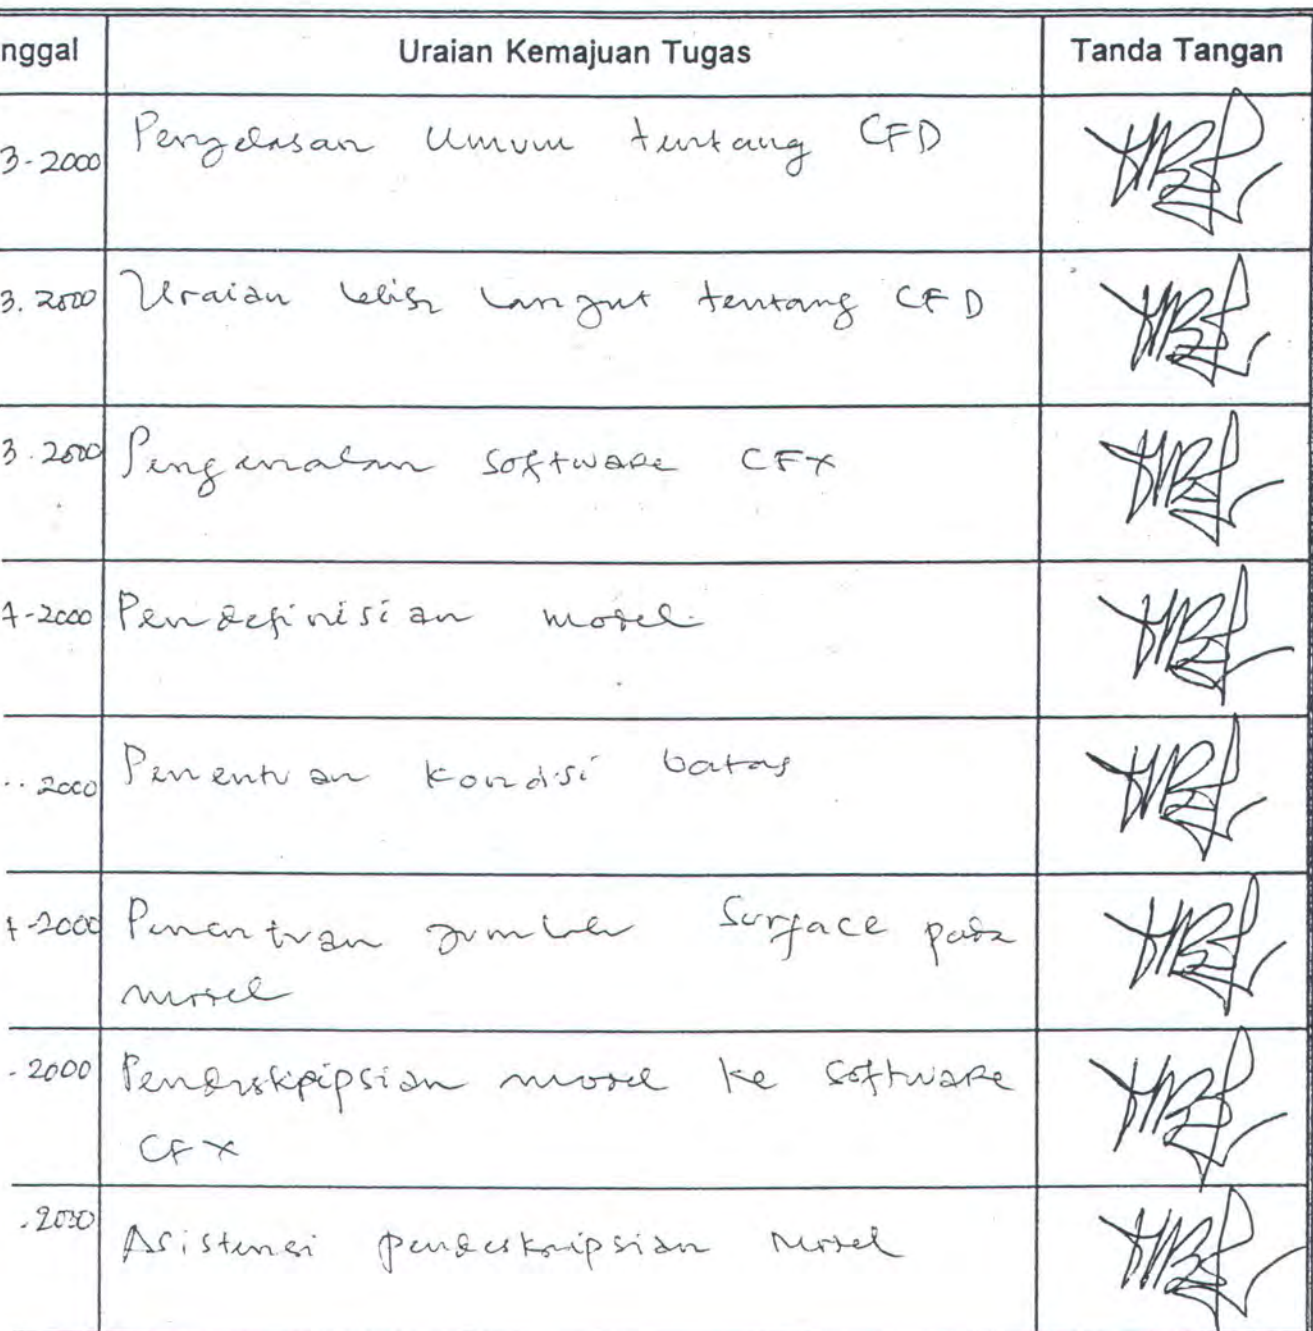 nggal Uraian Kemajuan Tugas Tanda Tangan
3-2000 Pengelasan Umum tentang CFD
3.2000 Uraian lebih langut tentang CFD
3.2000 Pengenalan software CFX
4-2000 Pendefinisian model
..2000 Penentuan kondisi batas
4-2000 Penentuan jumlah Surface pada
model
.2000 Pendeskripsian model ke software
CFX
.2000
Asistensi pendeskripsian model